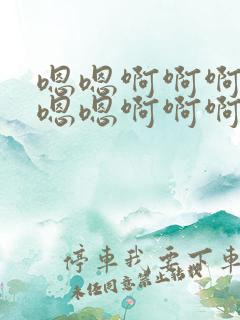 嗯嗯啊啊啊
嗯嗯啊啊啊
停車我要下車
未经同意禁止转载